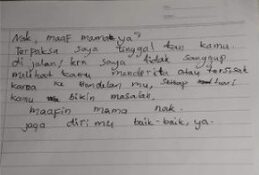 Nak, maaf mama ya?
Terpaksa saya tinggal kan kamu
di jalan, krn saya tidak sanggup
melihat kamu menderita atau tersiksa
karna ke bandelan mu, setiap hari
kamu bikin masalah.
maafin mama nak.
jaga diri mu baik-baik, ya.